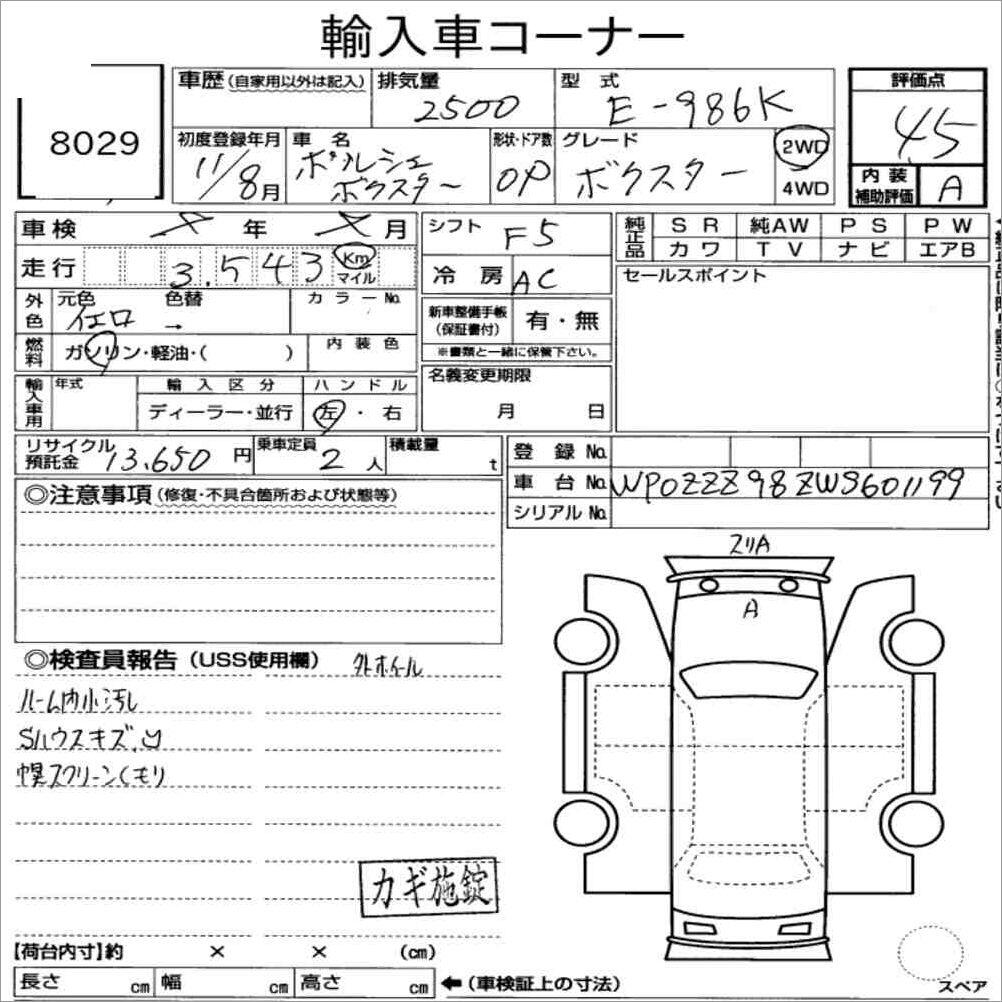 輸入車コーナー
8029
車歴(自家用以外は記入) 排気量 2500 型式 E-986K 評価点 4.5
初度登録年月 11/8月 車名 ポルシェ ボクスター 形状・ドア数 OP グレード ボクスター 2WD 4WD 内装補助評価 A
車検 年 月 シフト F5 純正品 SR 純AW PS PW
カワ TV ナビ エアB
走行 3,543 Km マイル 冷房 AC セールスポイント
外色 元色 イエロ 色替 → カラーNo.
新車整備手帳(保証書付) 有・無
※書類と一緒に保管下さい。
燃料 ガソリン・軽油・( ) 内装色
名義変更期限 月 日
輸入車用 年式 輸入区分 ディーラー・並行 ハンドル 左・右
リサイクル預託金 13,650 円 乗車定員 2人 積載量 t
登録No.
車台No. WP0ZZZ98ZWS601199
シリアルNo.
◎注意事項(修復・不具合箇所および状態等)
スリA
A
◎検査員報告(USS使用欄) 外ホイール
ルーム内小汚し
Sハウスキズ,凹
幌スクリーンくもり
カギ施錠
【荷台内寸】約 × × (cm)
長さ cm 幅 cm 高さ cm ←(車検証上の寸法)
スペア